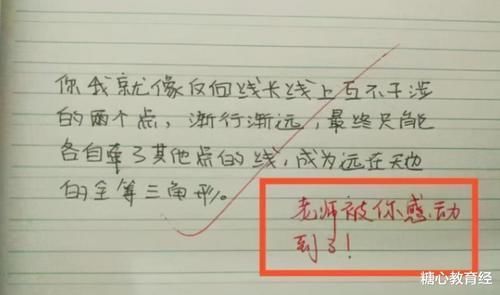 你我就像反向延长线上互不干涉
的两个点，渐行渐远，最终只能
各自牵了其他点的线，成为远在天边
的全等三角形。
老师被你感动
到了！
糖心教育经